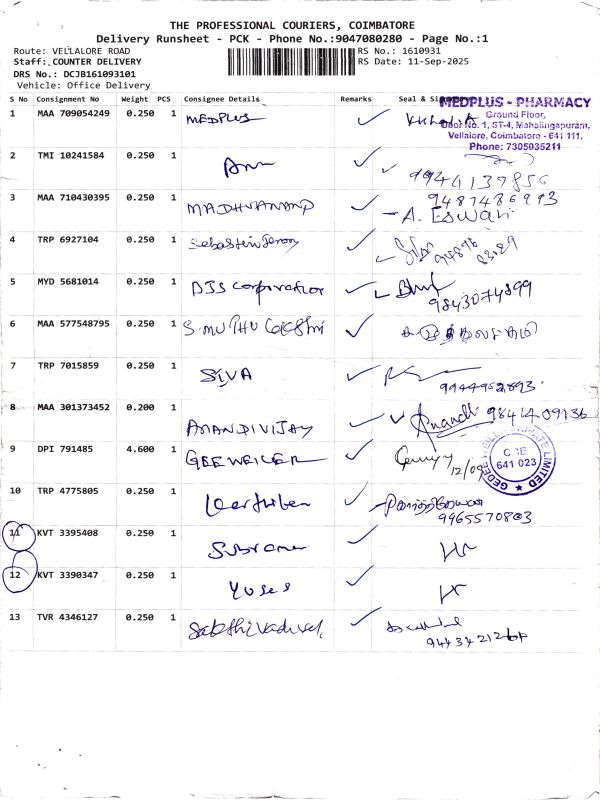 THE PROFESSIONAL COURIERS, COIMBATORE
Delivery Runsheet - PCK - Phone No.:9047080280 - Page No.:1
Route: VELLALORE ROAD
RS No.: 1610931
Staff: COUNTER DELIVERY
RS Date: 11-Sep-2025
DRS No.: DCJB161093101
Vehicle: Office Delivery
S No Consignment No Weight PCS Consignee Details Remarks Seal &
MEDPLUS - PHARMACY
Ground Floor,
Door No. 1, ST-4, Mahalingapuram,
Vellalore, Coimbatore - 641 111.
Phone: 7305035211
1 MAA 709054249 0.250 1 MEDPLUS
2 TMI 10241584 0.250 1
9944137856
3 MAA 710430395 0.250 1 MADHVANAND 9487486993
A. Eswari
4 TRP 6927104 0.250 1
5 MYD 5681014 0.250 1 DJS Corporation
9843074899
6 MAA 577548795 0.250 1 S. MUTHU LAKSHMI
7 TRP 7015859 0.250 1 SIVA
9944952893
8 MAA 301373452 0.200 1 ANANDIVIJAY Anandhi 9841409136
9 DPI 791485 4.600 1 GEEWEILER 12/09
CBE
641 023
PRIVATE LIMITED
10 TRP 4775805 0.250 1
9965570803
11 KVT 3395408 0.250 1
12 KVT 3390347 0.250 1
13 TVR 4346127 0.250 1 Sakthivadivel